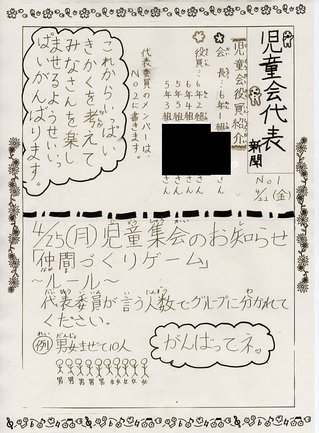 児童会代表
新聞
No1
4/22(金)
児童会役員紹介
会長:6年1組
さん
役員:6年2組
さん
6年4組
さん
5年3組
さん
5年3組
さん
代表委員のメンバーは、
No2に書きます。
これからいっぱい
きかくを考えて
みなさんを楽し
ませるよう せいいっ
ぱいがんばります。
4/25(月)児童集会のお知らせ
「仲間づくりゲーム」
~ルール~
代表委員が言う人数でグループに分かれて
ください。
例 男女合わせて10人
男男男男男女女女女女
がんばってネ。